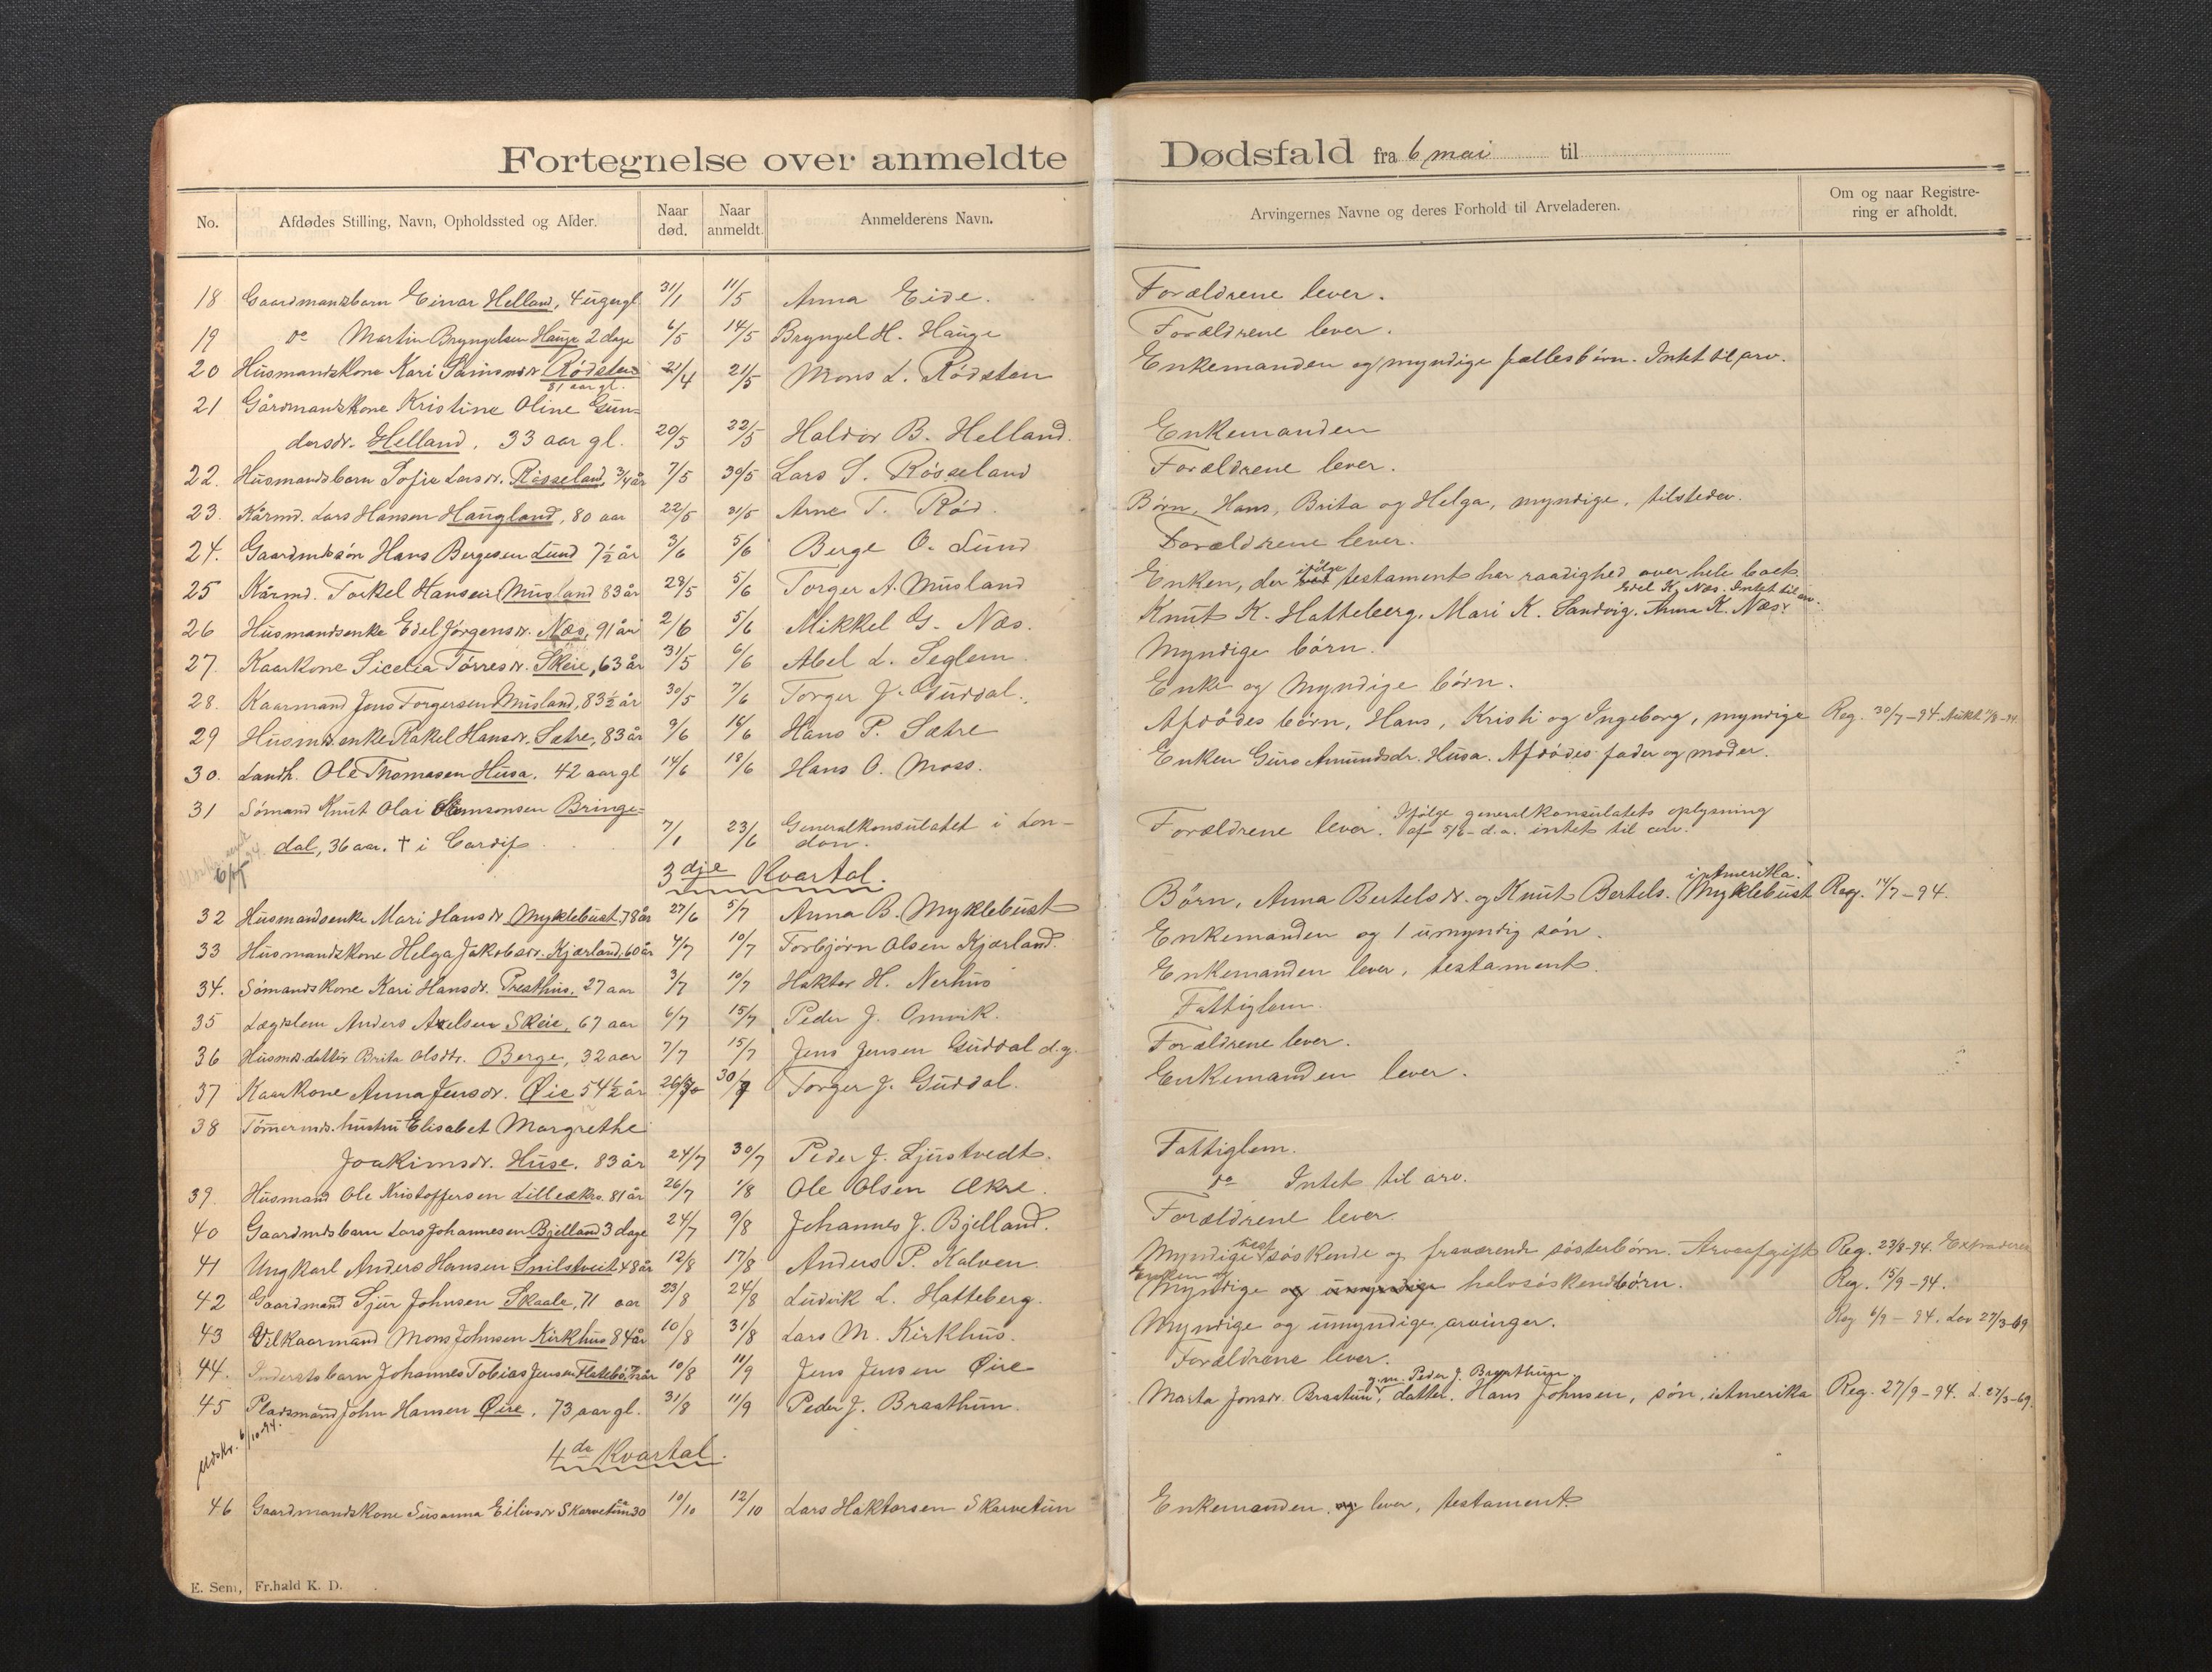 Fortegnelse over anmeldte Dødsfald fra 6 mai til
No. Afdødes Stilling, Navn, Opholdssted og Alder. Naar død. Naar anmeldt. Anmelderens Navn. Arvingernes Navne og deres Forhold til Arveladeren. Om og naar Registrering er afholdt.
18 Gaardmandsbarn Einar Helland, 4 uger gl 31/1 11/5 Anna Eide. Forældrene lever.
19 do Martin Bryngelsen Hauge 2 dage 6/5 14/5 Bryngel H. Hauge Forældrene lever.
20 Husmandskone Kari Samsonsdr Rödsten 21/4 21/5 Mons L. Rödsten Enkemanden og myndige fællesbörn. Intet til arv.
81 aar gl.
21 Gårdmandskone Kristine Oline Gun-
dersdr. Helland. 33 aar gl. 20/5 22/5 Haldor B. Helland. Enkemanden
22. Husmandsbarn Sofie Larsdr. Rösseland, 3/4 år 7/5 30/5 Lars S. Rösseland Forældrene lever.
23. Kårmd. Lars Hansen Haugland, 80 aar 22/5 31/5 Arne T. Röd. Börn, Hans, Brita og Helga, myndige, tilstede.
24. Gaardmdssön Hans Bergesen Lund 7½ år 3/6 5/6 Berge O. Lund Forældrene lever.
25 Kårmd. Torkel Hansen Musland 83 år 28/5 5/6 Torger A. Musland Enken, der ifölge testament har raadighed over hele boet.
Edel K. Næs. Intet til arv.
26 Husmandsenke Edel Jörgensdr. Næs, 91 år 2/6 5/6 Mikkel G. Næs. Knut K. Hatteberg, Mari K. Sandvig, Anna K. Næs,
27. Kaarkone Sicelia Törresdr. Skeie, 63 år 31/5 6/6 Abel L. Seglem. Myndige börn.
28. Kaarmand Jens Torgersen Musland, 83½ år 30/5 7/6 Torger J. Guddal. Enke og Myndige börn.
29 Husmds enke Rakel Hansdr. Sætre, 83 år 9/6 14/6 Hans P. Sætre Afdödes börn, Hans, Kristi og Ingeborg, myndige Reg. 30/7-94. Aukt. 11/8-94.
30. Landh. Ole Thomasen Husa. 42 aar gl 14/6 18/6 Hans O. Moss. Enken Guro Amundsdr. Husa. Afdödes fader og moder.
31 Sömand Knut Olai Samsonsen Bringe-
dal, 36 aar. † i Cardif 7/1 23/6 Generalkonsulatet i Lon-
don. Forældrene lever. Ifölge generalkonsulatets oplysning
af 5/6 d.a. intet til arv.
3dje Kvartal.
i Amerika.
32 Husmandsenke Mari Hansdr Myklebust 78 år 27/6 5/7 Anna B. Myklebust Börn, Anna Bertelsdr. og Knut Bertels. Myklebust Reg. 14/7-94.
33 Husmandskone Helga Jakobsdr. Kjærland, 60 år 4/7 10/7 Torbjörn Olsen Kjærland. Enkemanden og 1 umyndig sön.
34. Sömandskone Kari Hansdr. Presthus. 27 aar 3/7 10/7 Haktor H. Nerhus Enkemanden lever, testament.
35 Lægslem Anders Axelsen Skeie, 67 aar 6/7 15/7 Peder J. Omvik. Fattiglem.
36 Husmds datter Brita Olsdtr. Berge, 32 aar 7/7 15/7 Jens Jensen Guddal d.y. Forældrene lever.
37 Kaarkone Anna Jensdr. Øie 54½ år 26/7 30/7 Torger J. Guddal. Enkemanden lever.
38 Tömermds. hustru Elisabet Margrethe
Joakimsdr. Huse. 83 år 24/7 30/7 Peder J. Ljustvedt. Fattiglem.
39. Husmand Ole Kristoffersen Lilleækre. 81 år 26/7 1/8 Ole Olsen Ækre. do Intet til arv.
40 Gaardmdsbarn Lars Johannesen Bjelland 3 dage 24/7 9/8 Johannes J. Bjelland. Forældrene lever.
41 Ungkarl Anders Hansen Snilstveit 48 år 12/8 17/8 Anders P. Kalven. Myndige söskende og fraværende sösterbörn. Arveafgift Reg. 23/8-94.
Enken og
42 Gaardmand Sjur Johnsen Skaale, 71 aar 23/8 24/8 Ludvik L. Hatteberg. Myndige og umyndige halvsöskendbörn. Reg. 15/9-94.
43 Vilkaarmand Mons Johnsen Kirkhus 84 år 10/8 31/8 Lars M. Kirkhus. Myndige og umyndige arvinger. Reg 6/9-94. Lov 27/3-69
44. Inderstsbarn Johannes Tobias Jensen 10/8 11/9 Jens Jensen Øire Forældrene lever.
45 Pladsmand John Hansen Øire, 73 aar gl. 31/8 11/9 Peder J. Braathun. Marta Jonsdr. Braatun, g.m. Peder J. Braathun, datter. Hans Johnsen, sön, i Amerika Reg. 27/9-94. L. 27/3-69.
Udskr. 6/10-94.
4de Kvartal.
46 Gaardmandskone Susanna Eilivsdr Skarvetun 30 10/10 12/10 Lars Haktorsen Skarvetun Enkemanden og lever, testament.
E. Sem, Fr.hald K. D.